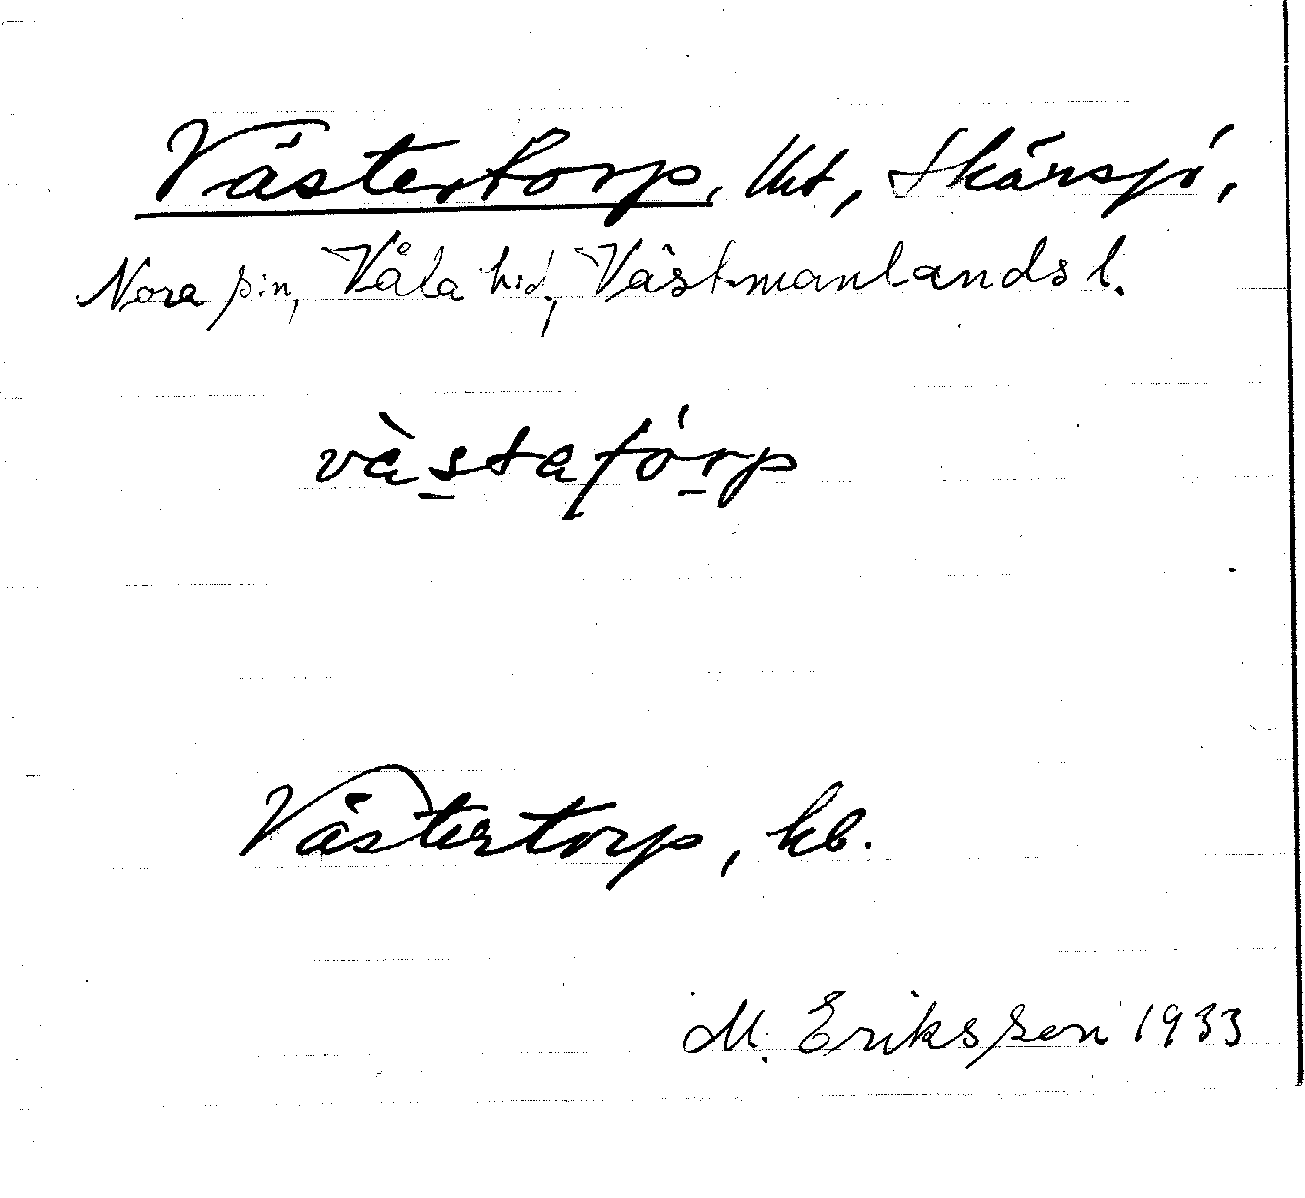 Västertorp, Uht, Skärsjö,
Nora s:n, Våla hd, Västmanlands l.
västatórp
Västertorp, kb.
M. Eriksson 1933